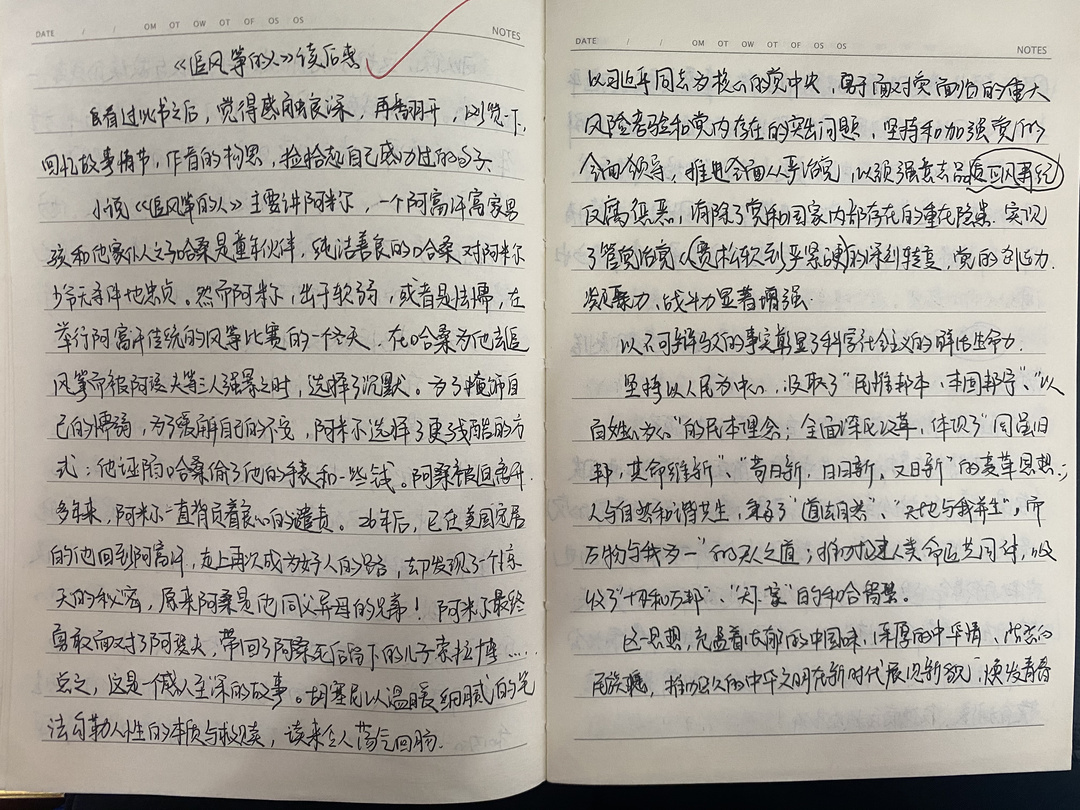 DATE / / OM OT OW OT OF OS OS NOTES
《追风筝的人》读后感
自看过此书之后，觉得感触良深，再翻开，浏览一下，
回忆故事情节，作者的构思，捡拾起自己感动过的句子
小说《追风筝的人》主要讲阿米尔，一个阿富汗富家男
孩和他家仆人之子哈桑是童年伙伴，纯洁善良的哈桑对阿米尔
无条件地忠贞。然而阿米尔，出于软弱，或者是法懦，在
举行阿富汗传统的风筝比赛的一个冬天，在哈桑为他去追
风筝而被阿塞夫等三人强暴之时，选择了沉默。为了掩饰自
己的懦弱，为了缓解自己的不安，阿米尔选择了更残酷的方
式：他诬陷哈桑偷了他的手表和一些钱。阿桑被迫离开
多年来，阿米尔一直背负着良心的谴责。26年后，已在美国定居
的他回到阿富汗，走上再次成为好人的路，却发现了一个惊
天的秘密，原来阿桑是他同父异母的兄弟！阿米尔最终
勇敢面对了阿塞夫，带回了阿桑死后留下的儿子索拉博……
总之，这是一个感人至深的故事。胡塞尼以温暖细腻的笔
法勾勒人性的本质与救赎，读来令人荡气回肠.
DATE / / OM OT OW OT OF OS OS NOTES
以习近平同志为核心的党中央，勇于面对党面临的重大
风险考验和党内存在的突出问题，坚持和加强党的
全面领导，推进全面从严治党，以顽强意志品质正风肃纪
反腐惩恶，消除了党和国家内部存在的严重隐患，实现
了管党治党《宽松软到严紧硬》的深刻转变，党的创造力.
凝聚力，战斗力显著增强.
以不可辩驳的事实彰显了科学社会主义的鲜活生命力.
坚持以人民为中心，汲取了“民惟邦本，本固邦宁”、“以
百姓心为心”的民本理念；全面深化改革，体现了“周虽旧
邦，其命维新”“苟日新，日日新，又日新”的变革思想；
人与自然和谐共生，“道法自然”、“天地与我并生”，而
万物与我为一”的天人之道；推动构建人类命运共同体，吸
收了“协和万邦”、“天下一家”的和合智慧。
这一思想，充盈着浓郁的中国味、深厚的中华情、浩然的
民族魂，推动悠久的中华文明在新时代展现新貌，焕发青春